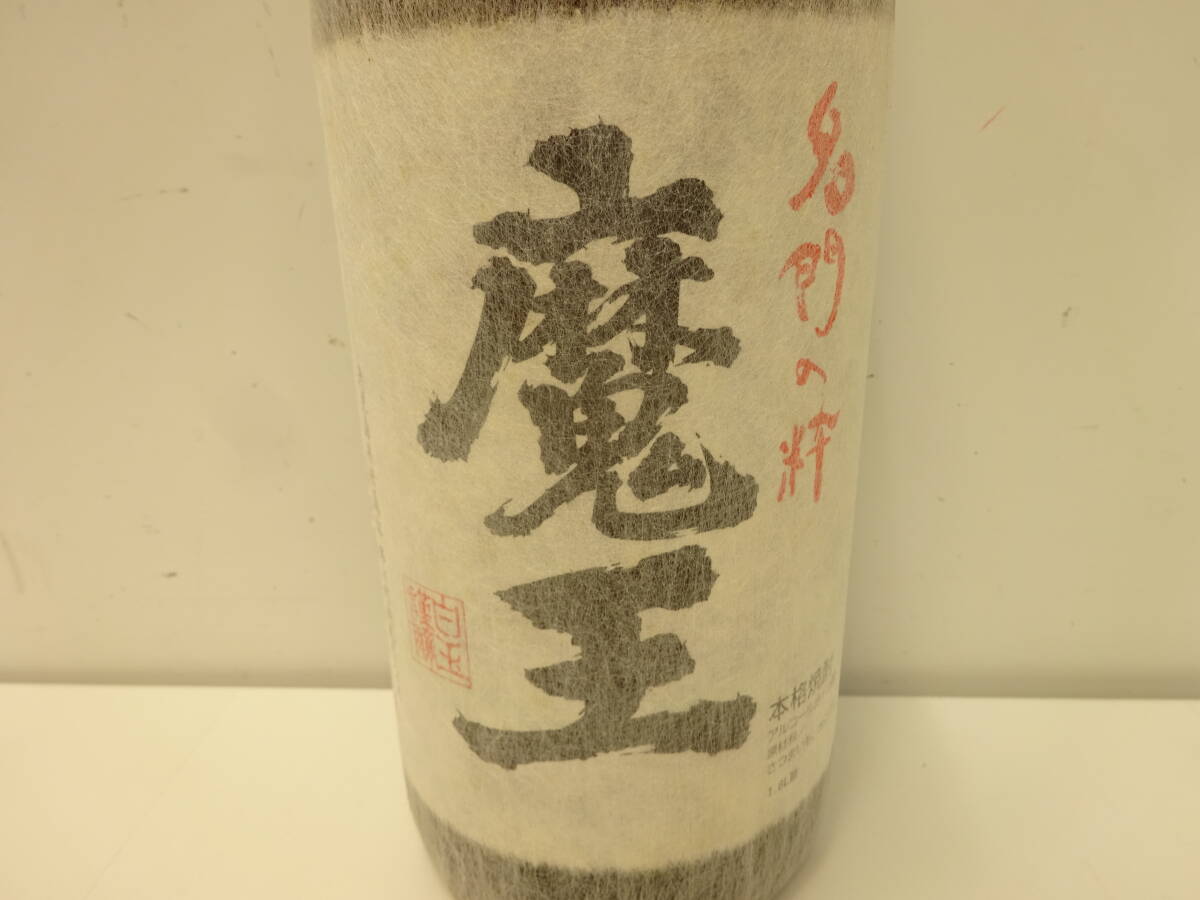 名門の粋
魔王
白玉
本格焼酎
アルコール
原材料
さつまいも
1.8L詰